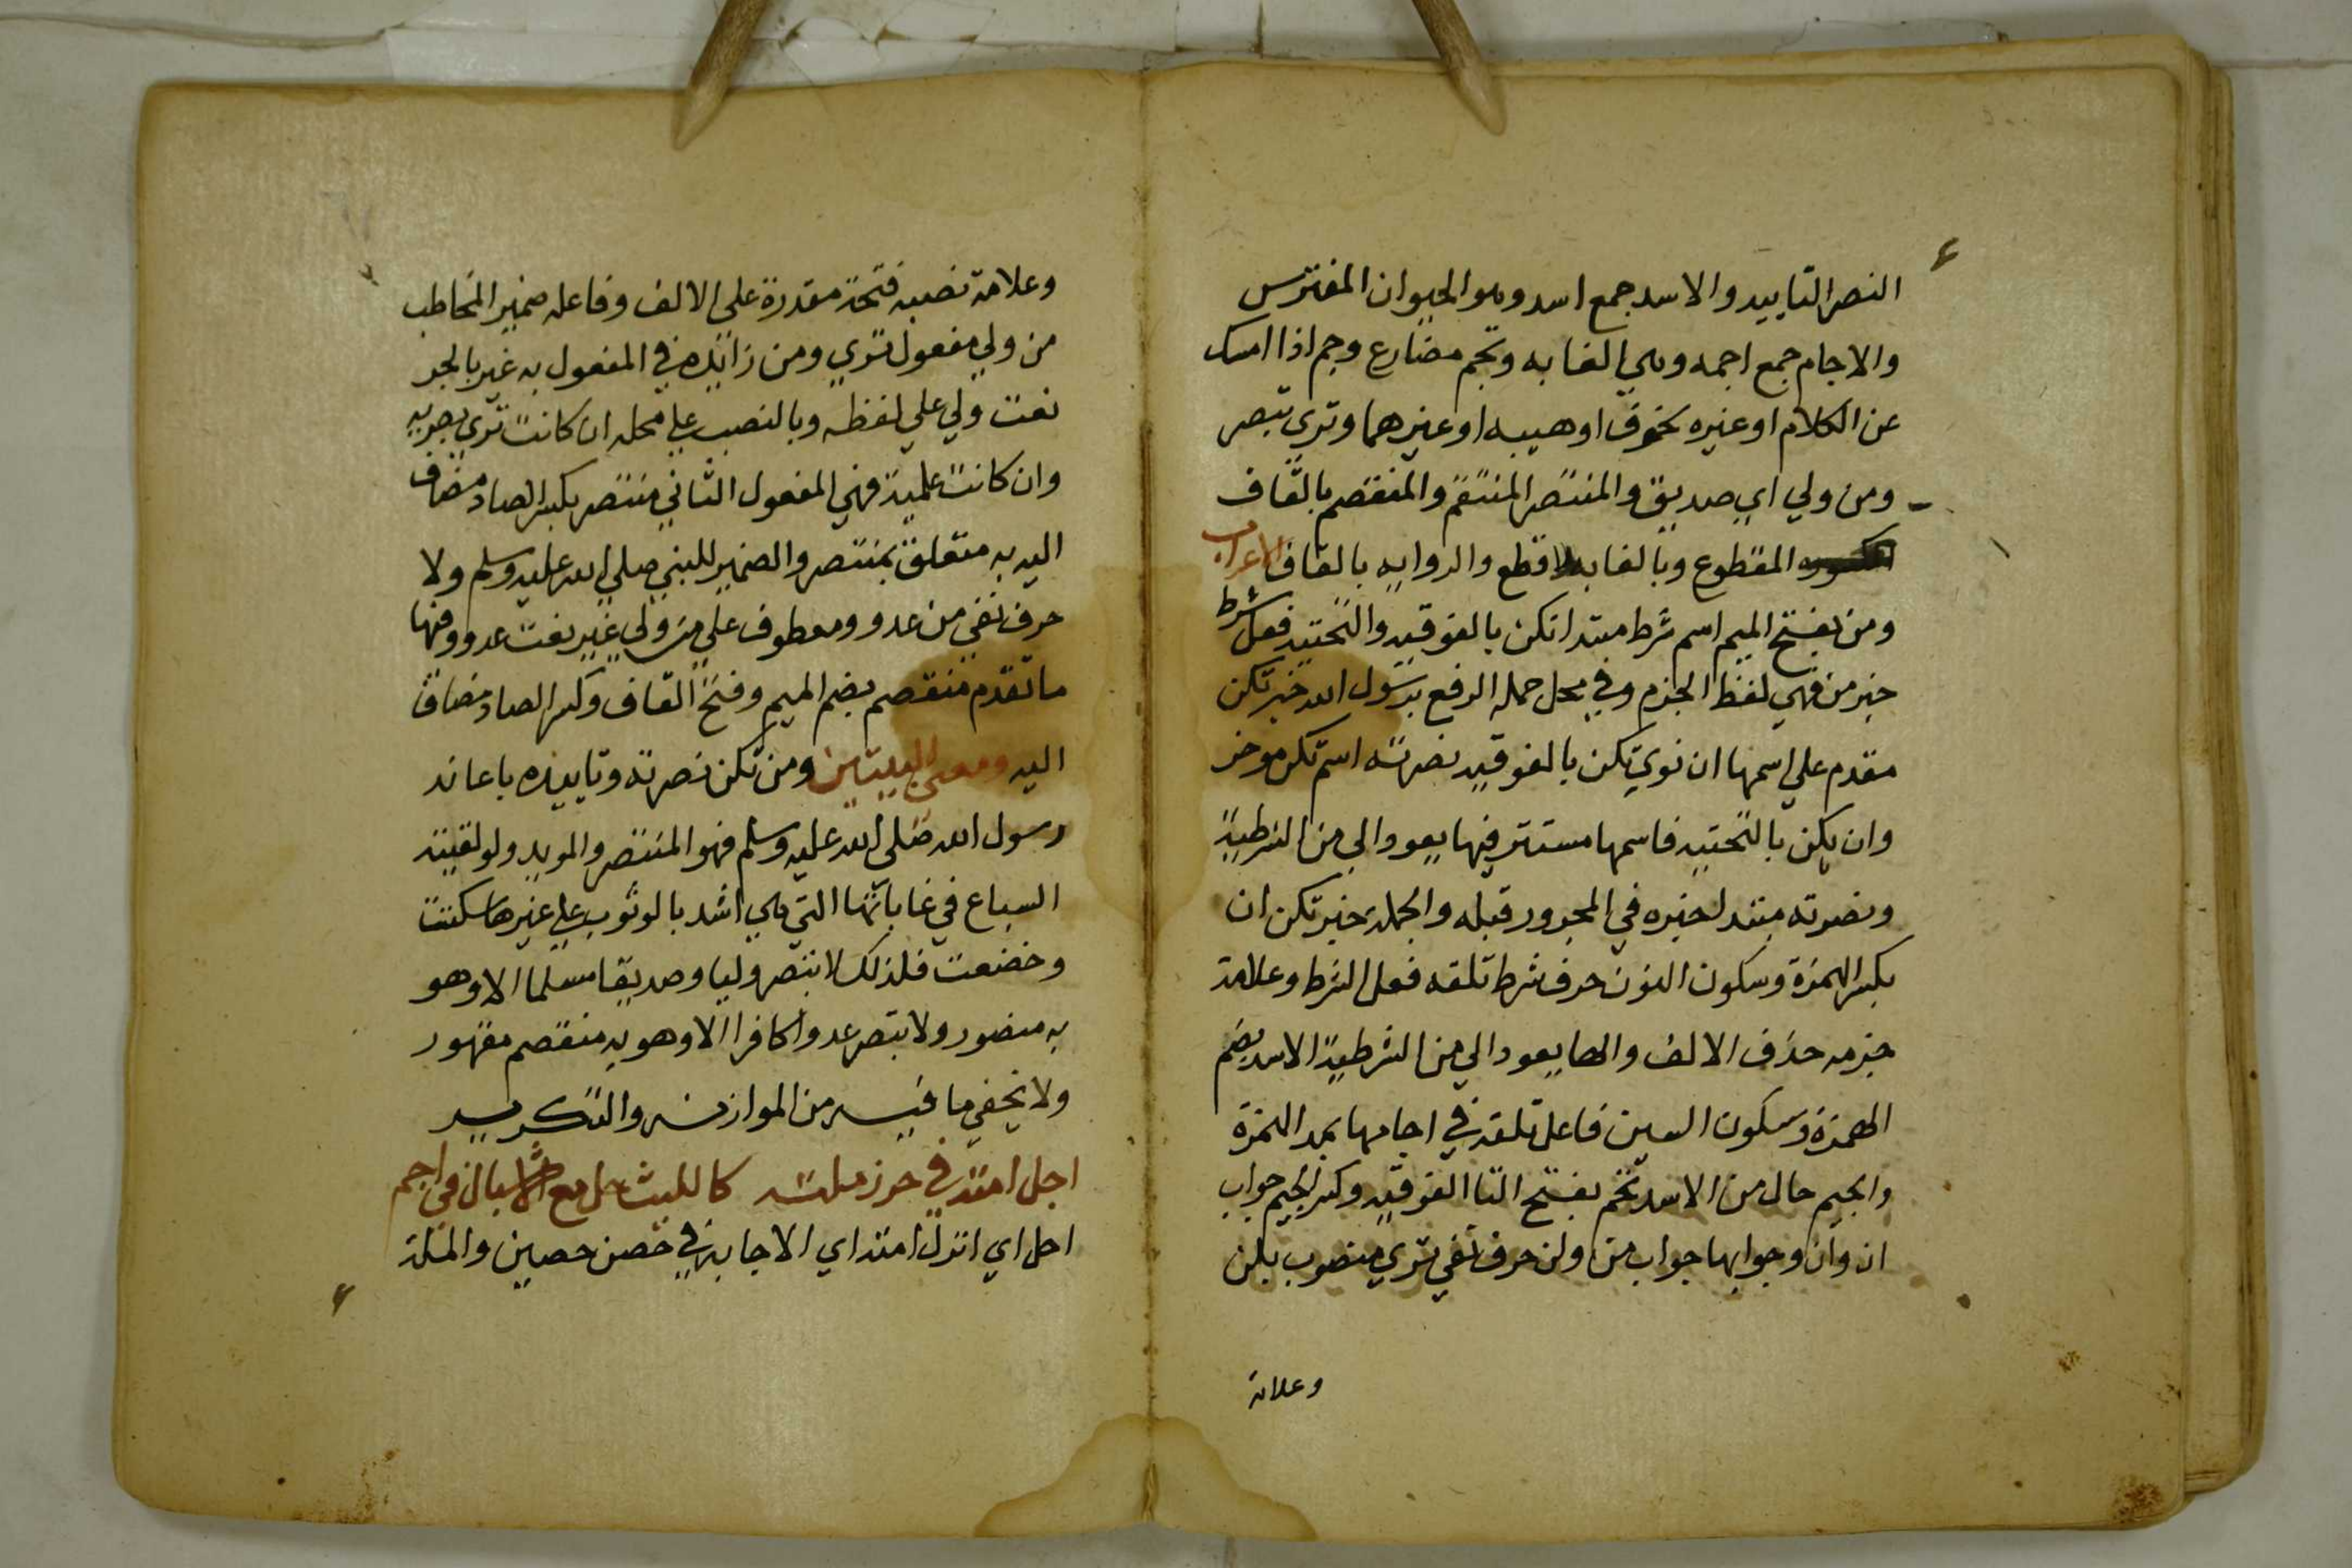 النصر التاييد والاسد جمع اسد وهو الحيوان المفترس
والاجام جمع اجمه وهي الغابه وتجم مضارع وجم اذا امسك
عن الكلام او غيره بخوف او هيبه او غيرهما وتري تبصر
ومن ولي اي صديق والمنتصر المنتقم والمنقصم بالقاف
المقطوع وبالفا بلا قطع والروايه بالقاف الاعراب
ومن بفتح الميم اسم شرط مبتدا تكن بالفوقيه والتحتيه فعل شرط
خبر من فهي لفظ الجزم وفي محل جمله الرفع برسول الله خبر تكن
مقدم علي اسمها ان نوي تكن بالفوقيه نصرته اسم تكن موخر
وان يكن بالتحتيه فاسمها مستتر فيها يعود الي من الشرطية
ونصرته مبتدا خبره في المجرور قبله والجمله خبر تكن ان
بكسر الهمزة وسكون النون حرف شرط تلقه فعل الشرط وعلامة
جزمه حذف الالف والها يعود الي من الشرطية الاسد بضم
الهمزة وسكون السين فاعل تلقه في اجامها بمد الهمزة
والجيم حال من الاسد تجم بفتح التا الفوقيه وكسر الجيم جواب
ان وان وجوابها جواب من ولن حرف نفي تري منصوب بلن
وعلامة
وعلامة نصبه فتحة مقدرة علي الالف وفاعله ضمير المخاطب
من ولي مفعول تري ومن زايده في المفعول به غير بالجر
نعت ولي علي لفظه وبالنصب علي محله ان كانت تري بصريه
وان كانت علمية فهي المفعول الثاني منتصر بكسر الصاد مضاف
اليه به متعلق بمنتصر والضمير للنبي صلي الله عليه وسلم ولا
حرف نفي من عدو ومعطوف علي من ولي غير نعت عدو وفيها
ما تقدم منقصم بضم الميم وفتح القاف وكسر الصاد مضاف
اليه ومعني البيتين ومن تكن نصرته وتاييده باعانه
رسول الله صلي الله عليه وسلم فهو المنتصر والمويد ولو لقيته
السباع في غاباتها التي هي اشد بالوثوب علي غيرها سكنت
وخضعت فلذلك لا بتصر وليا وصديقا مسلما الا وهو
به منصور ولا بتصر عدوا كافرا الا وهو به منقصم مقهور
ولا يخفي ما فيه من الموازنه والتكرير
احل امته في حرز ملته كالليث حل مع الاشبال في اجم
احل اي انزل امته اي الاجابه في حصن حصين والملة